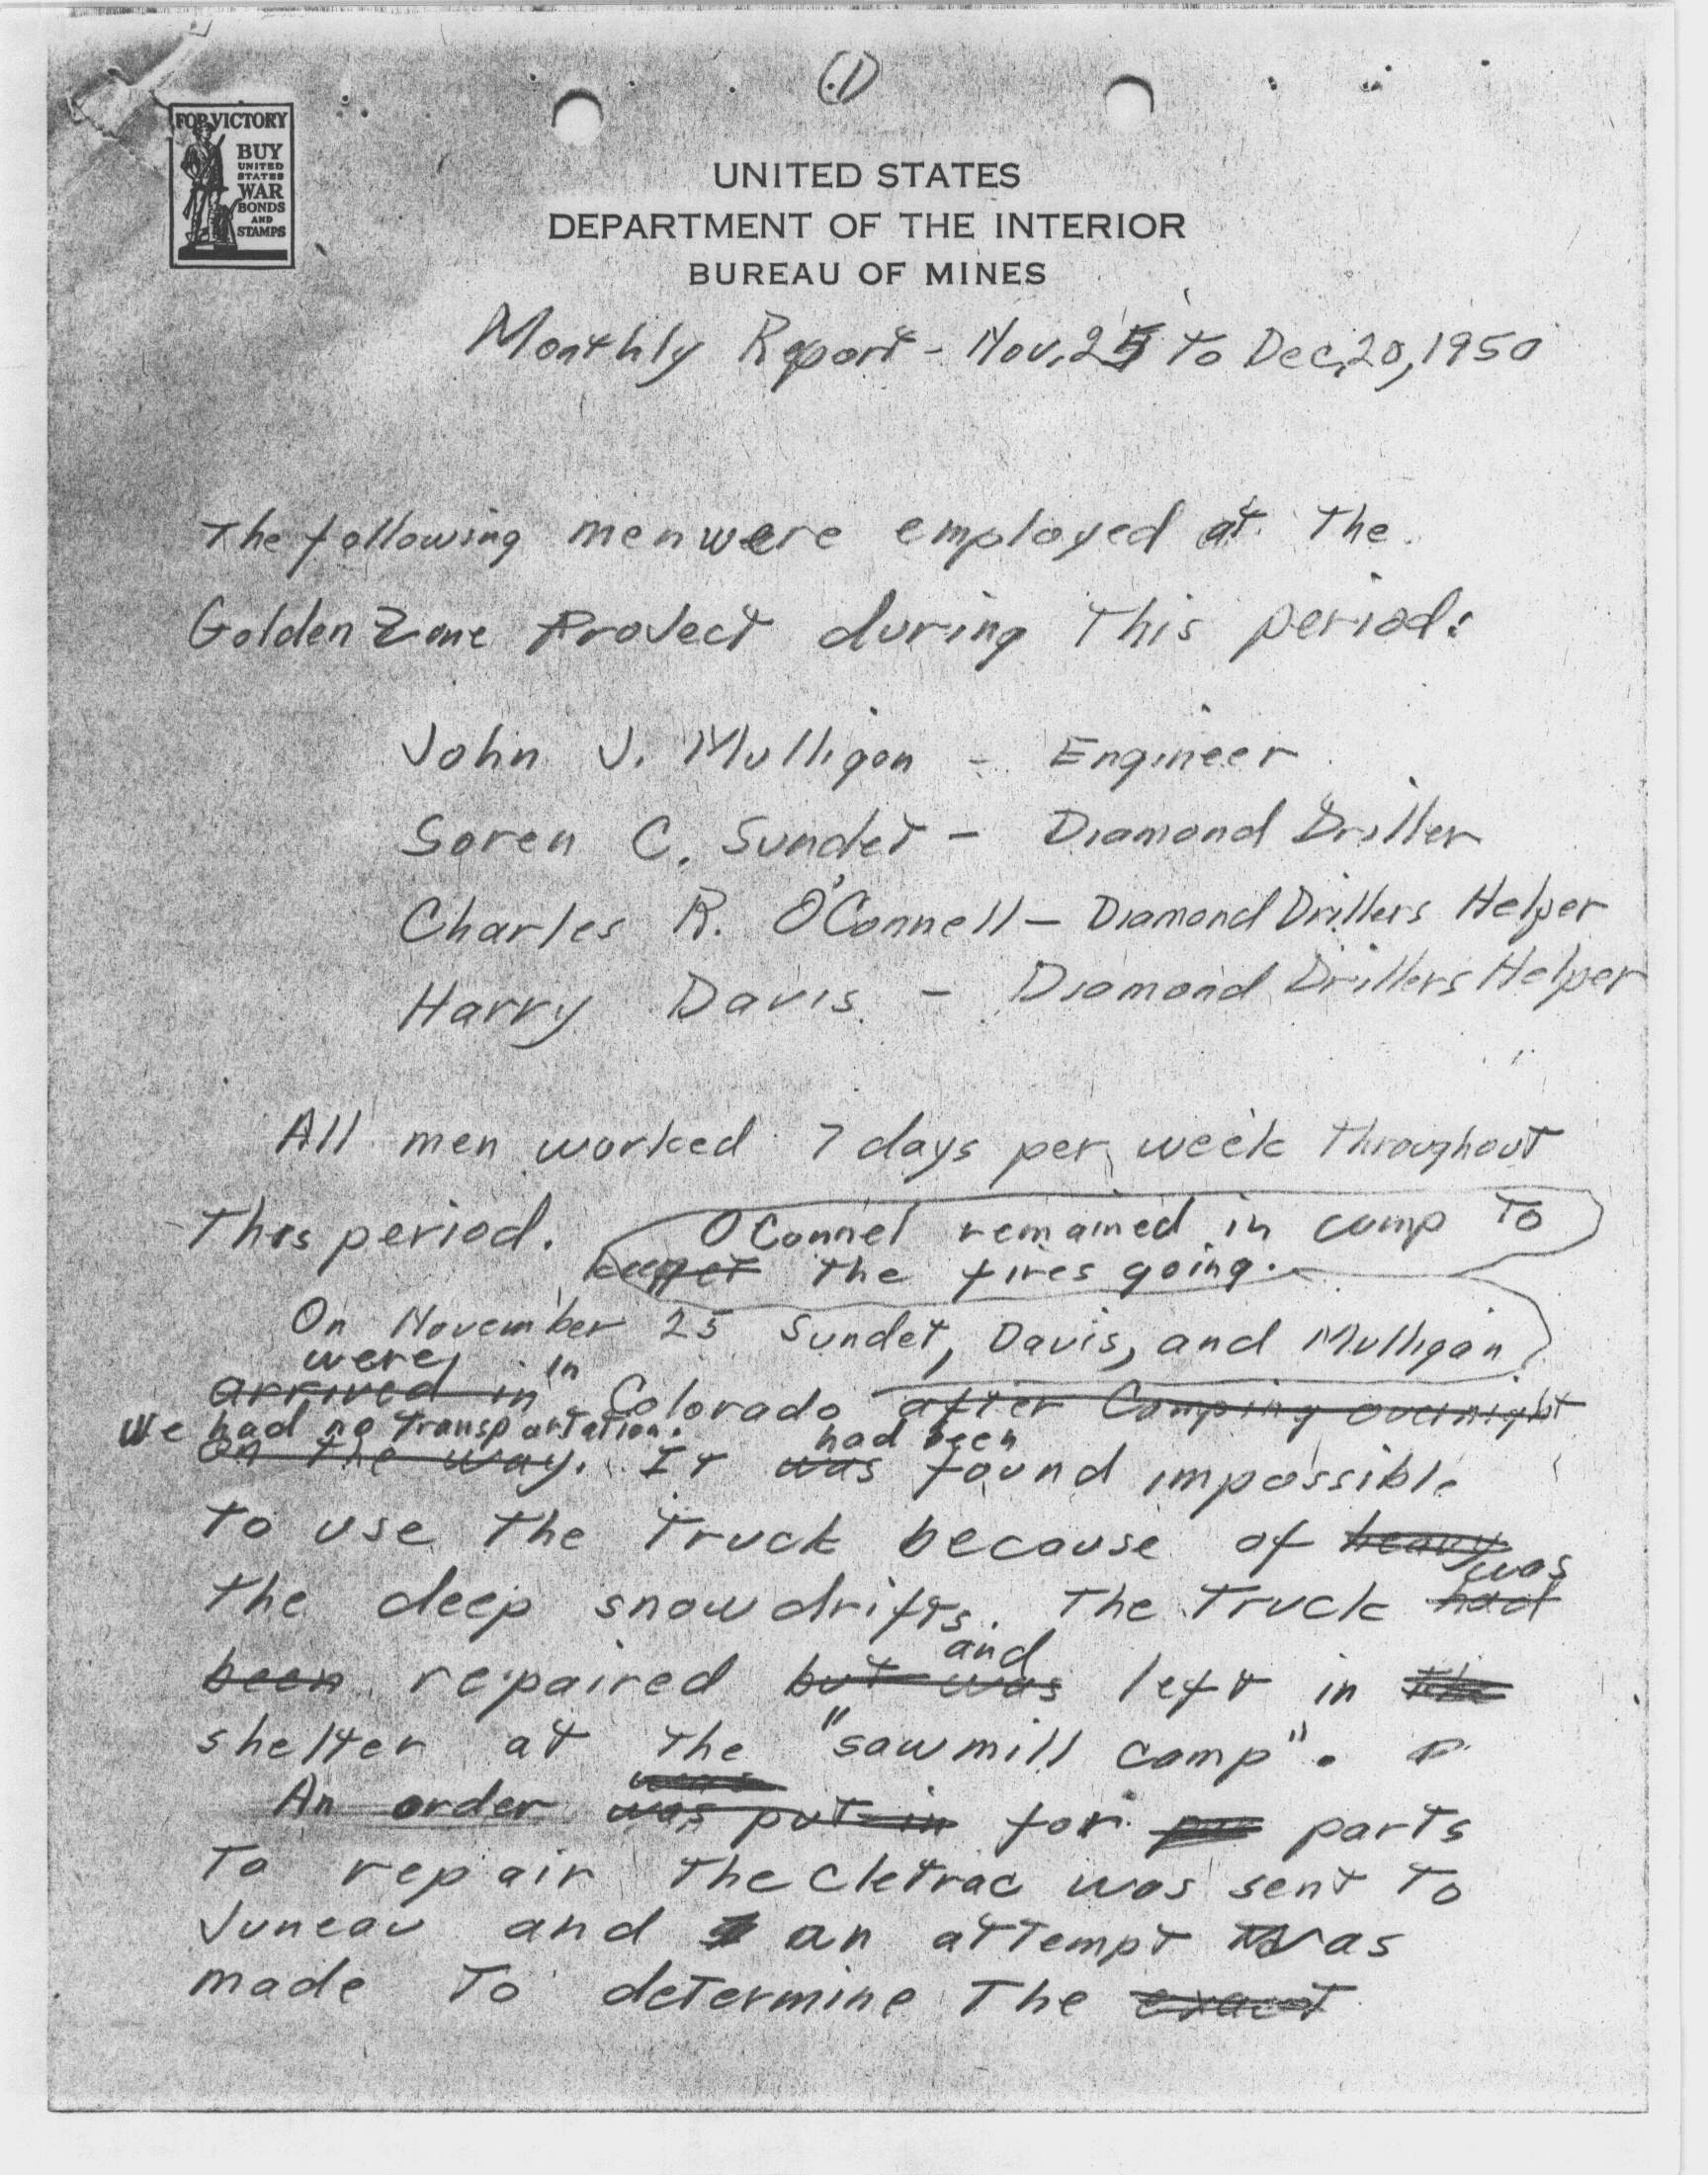 (1)
FOR VICTORY
BUY
UNITED
STATES
WAR
BONDS
AND
STAMPS
UNITED STATES
DEPARTMENT OF THE INTERIOR
BUREAU OF MINES
Monthly Report - Nov. 25 to Dec. 20, 1950
The following men were employed at the
Golden Zone Project during this period:
John J. Mulligan - Engineer
Soren C. Sundet - Diamond Driller
Charles R. O'Connell - Diamond Drillers Helper
Harry Davis - Diamond Drillers Helper
All men worked 7 days per week throughout
this period. O'Connel remained in camp to
the fires going.
On November 25 Sundet, Davis, and Mulligan
were in
arrived in Colorado after camping overnight
We had no transportation. had been
on the way. It was found impossible
to use the truck because of heavy
was
the deep snowdrifts. The truck had
and
been repaired but was left in the
shelter at the "sawmill camp".
was
An order was put in for parts
to repair the Cletrac was sent to
Juneau and an attempt was
made to determine the exact